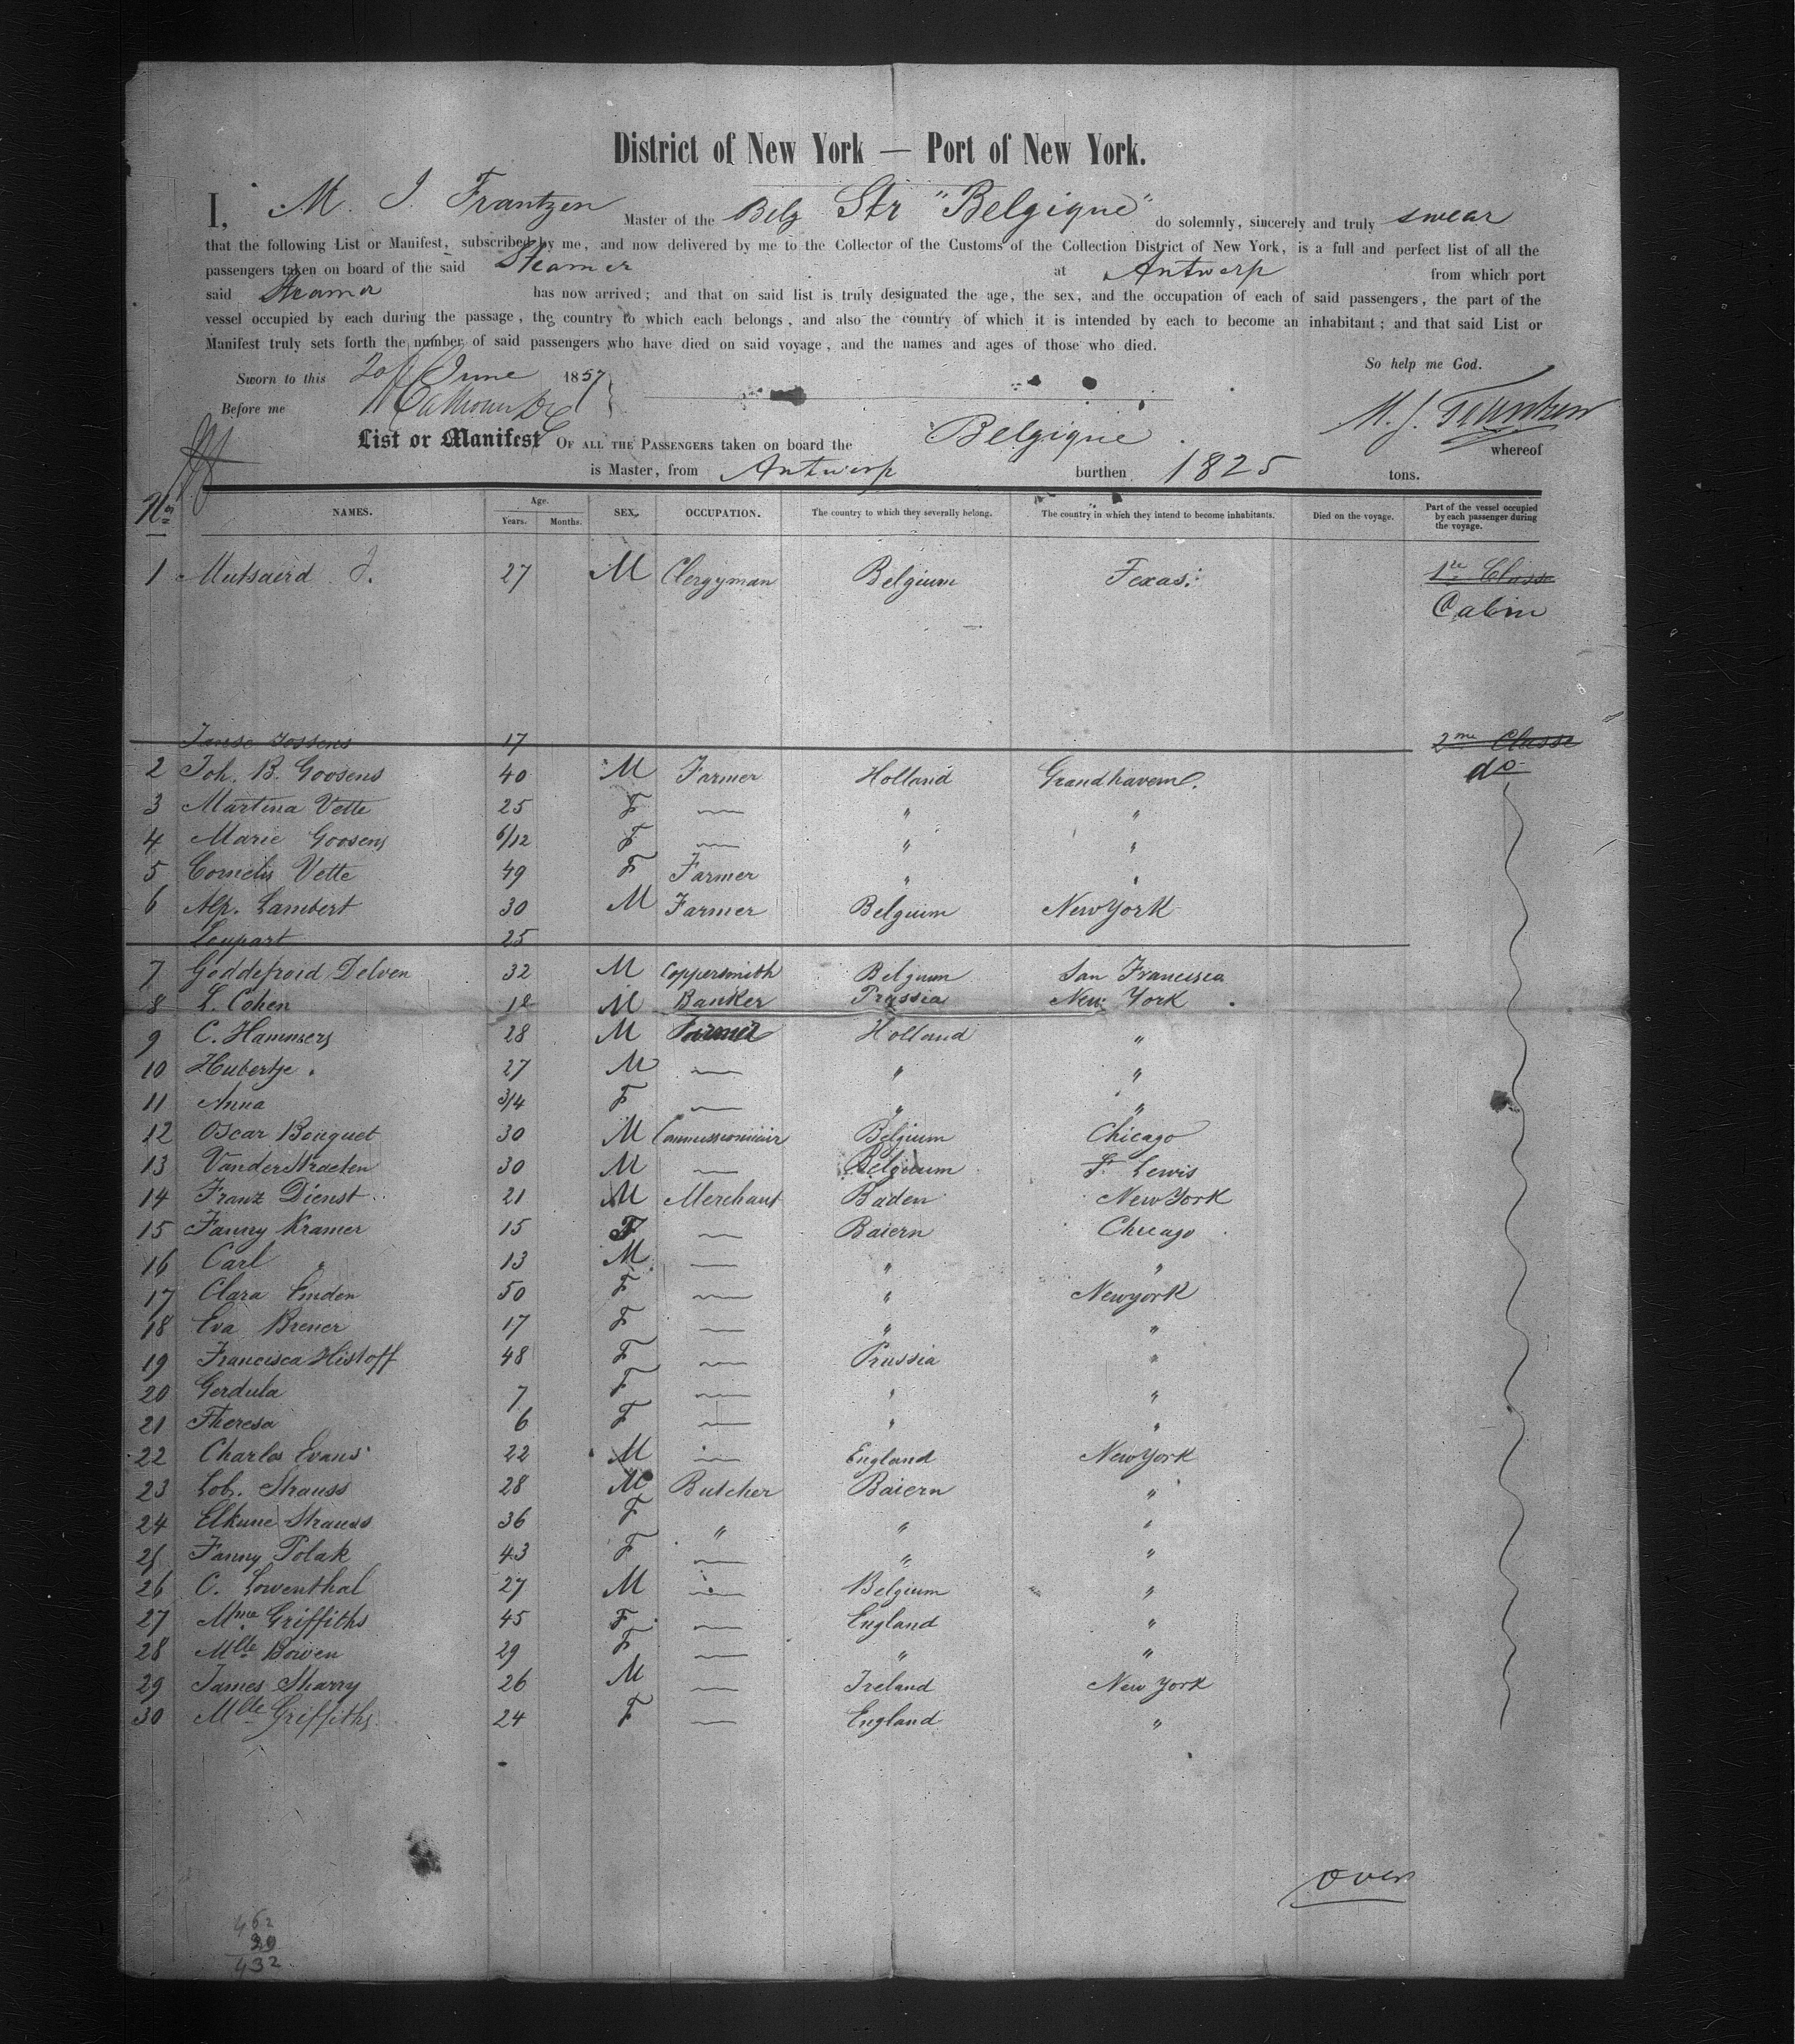 District of New York — Port of New York.
I, M. J. Frantzen Master of the Belg Str "Belgique" do solemnly, sincerely and truly swear
that the following List or Manifest, subscribed by me, and now delivered by me to the Collector of the Customs of the Collection District of New York, is a full and perfect list of all the
passengers taken on board of the said Steamer at Antwerp from which port
said Steamer has now arrived; and that on said list is truly designated the age, the sex, and the occupation of each of said passengers, the part of the
vessel occupied by each during the passage, the country to which each belongs, and also the country of which it is intended by each to become an inhabitant; and that said List or
Manifest truly sets forth the number of said passengers who have died on said voyage, and the names and ages of those who died.
So help me God.
Sworn to this 20 June 1857
Before me
M. J. Frantzen
List or Manifest OF ALL THE PASSENGERS taken on board the Belgique whereof
is Master, from Antwerp burthen 1825 tons.
Nos NAMES. Age. Years. Months. SEX. OCCUPATION. The country to which they severally belong. The country in which they intend to become inhabitants. Died on the voyage. Part of the vessel occupied by each passenger during the voyage.
1 Mutsaerd J. 27 M Clergyman Belgium Texas. 1re Classe
Cabin
17 2me Classe
2 Joh. B. Goosens 40 M Farmer Holland Grandhaven. do
3 Martina Vette 25 F — " "
4 Marie Goosens 6/12 F — " "
5 Cornelis Vette 49 F Farmer " "
6 Alp. Lambert 30 M Farmer Belgium New York
Leupart 25
7 Goddefroid Delven 32 M Coppersmith Belgium San Francisco
8 L. Cohen 18 M Banker Prussia New York
9 C. Hammers 28 M Farmer Holland "
10 Hubertje " 27 M — " "
11 Anna 3/4 F — " "
12 Oscar Bouquet 30 M Commissionnair Belgium Chicago
13 VanderStraeten 30 M — Belgium St Lewis
14 Franz Dienst 21 M Merchant Baden New York
15 Fanny Kramer 15 F — Baiern Chicago
16 Carl " 13 M — " "
17 Clara Emden 50 F — " Newyork
18 Eva Brener 17 F — " "
19 Francisca Histoff 48 F — Prussia "
20 Gerdula 7 F — " "
21 Theresa 6 F — " "
22 Charles Evans 22 M — England New York
23 Lob. Strauss 28 M Butcher Baiern "
24 Elkune Strauss 36 F " " "
25 Fanny Polak 43 F — " "
26 C. Lowenthal 27 M — Belgium "
27 Mme Griffiths 45 F — England "
28 Mlle Bowen 29 F — " "
29 James Sharry 26 M — Ireland New York
30 Mlle Griffiths 24 F — England "
over
462
30
432